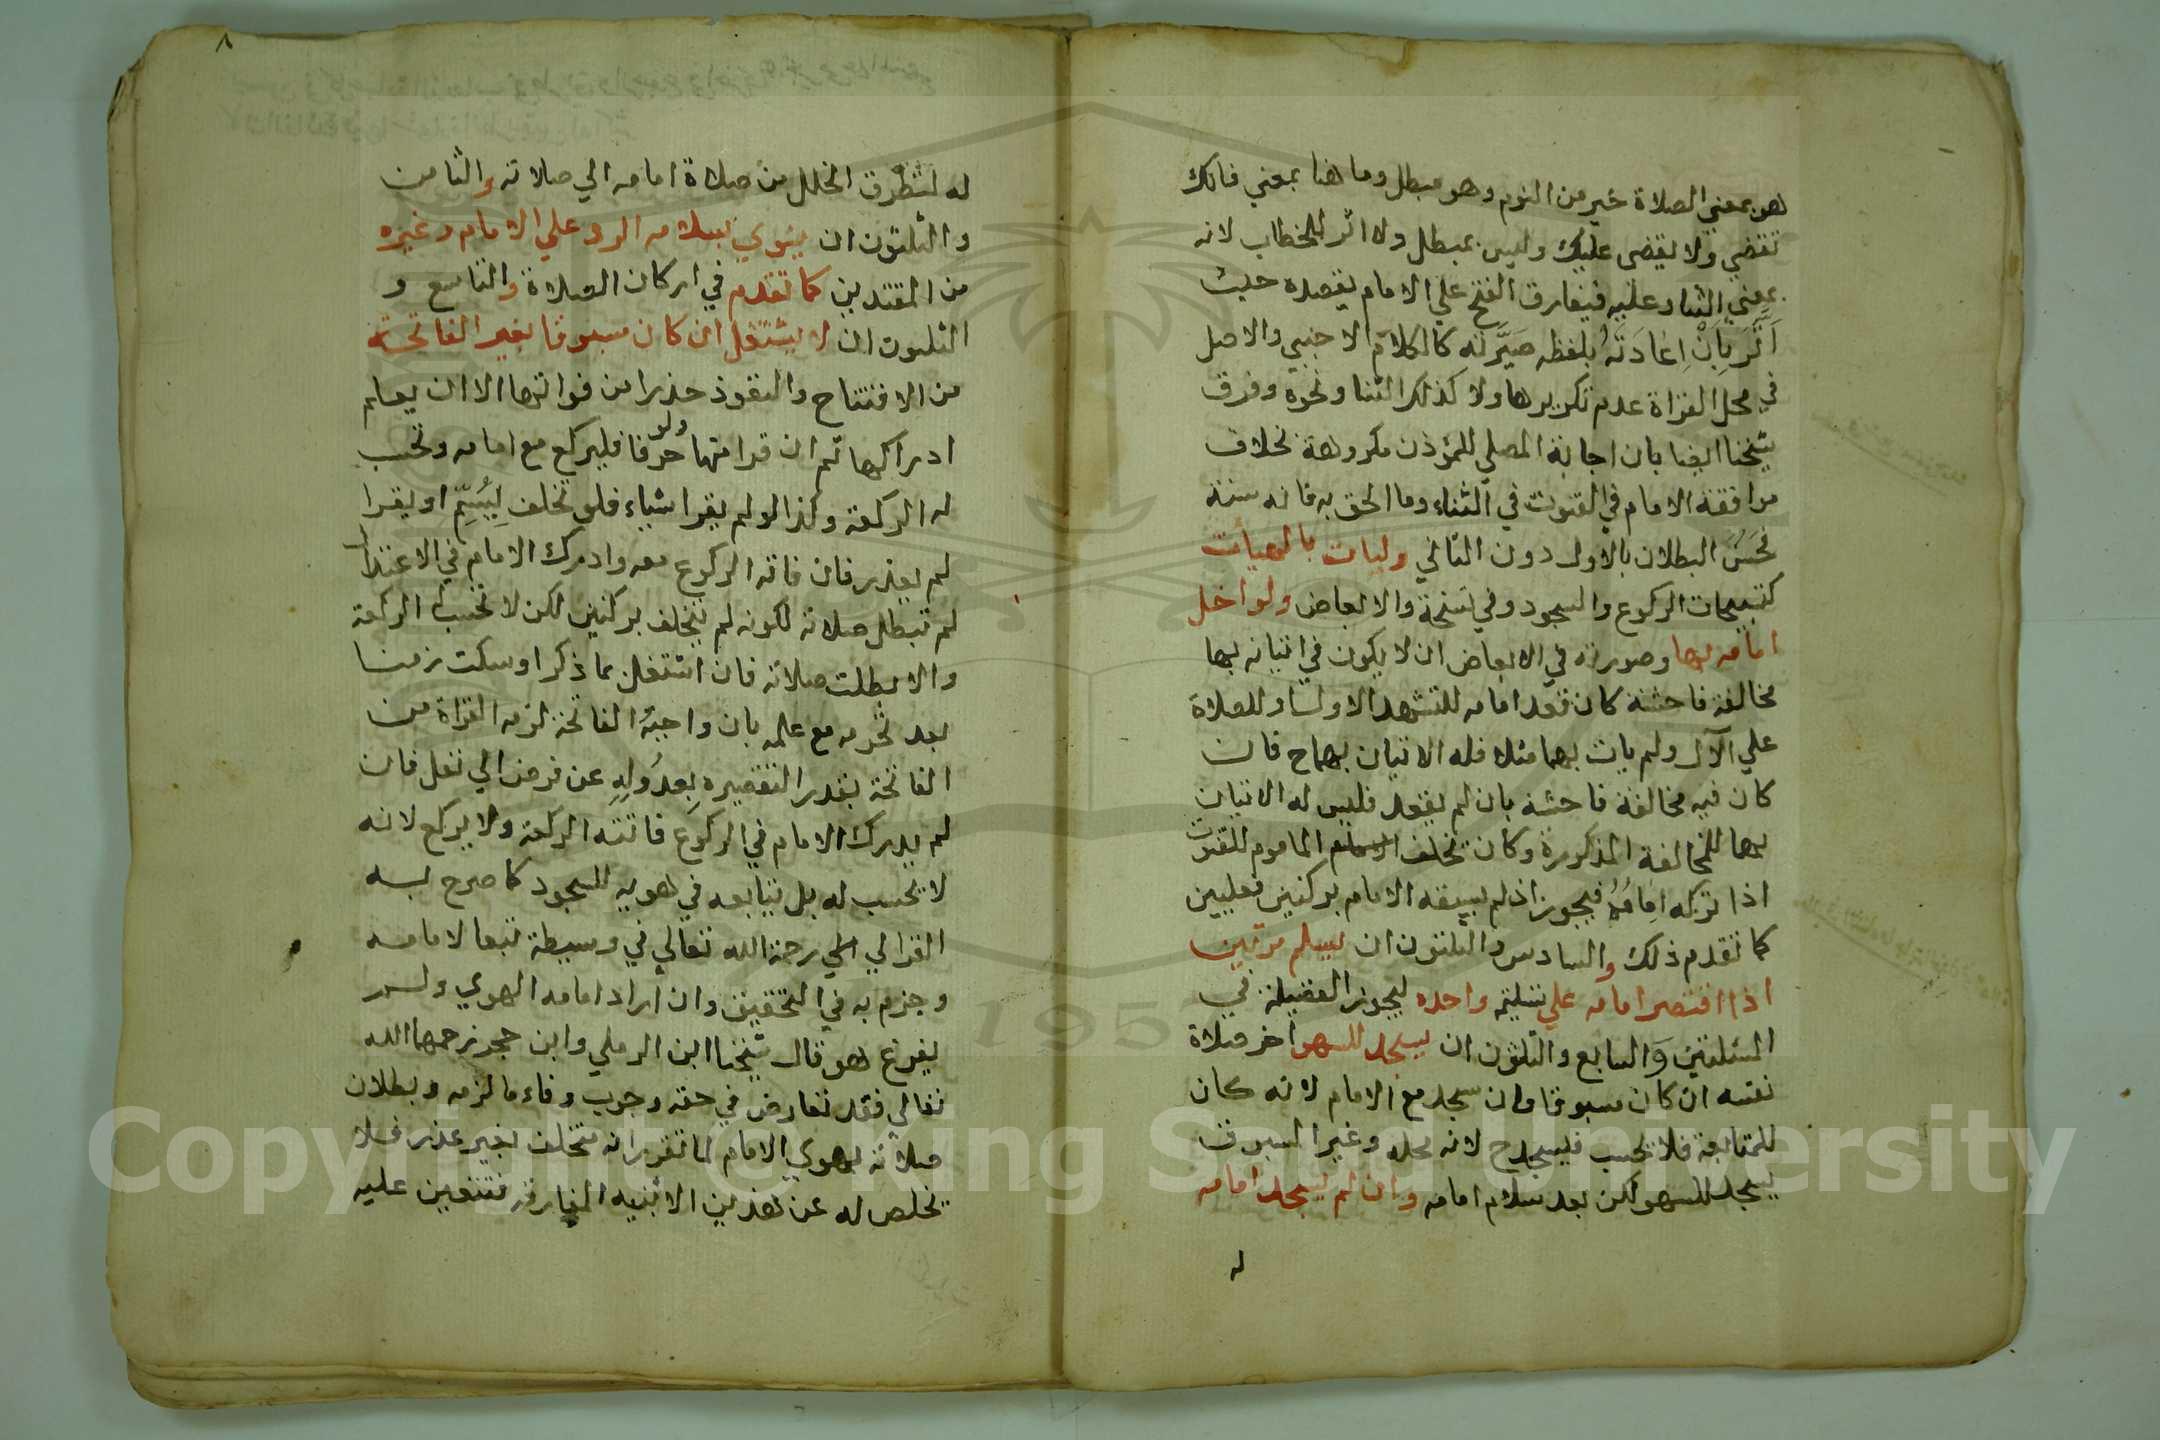 هو بمعني الصلاة خير من النوم وهو مبطل وما هنا بمعني فانك
تقضي ولا يقضى عليك وليس بمبطل ولا اثر للخطاب لانه
بمعني الثناء عليه فيفارق الفتح علي الامام بقصده حيث
اَثَّرَ بِاَنْ اِعَادَتَهُ بلفظه صَيَّرَتْه كالكلام الاجنبي والاصل
في محل القراة عدم تكريرها ولا كذلك الثنا ونحوه وفرق
شيخنا ايضا بان اجابة المصلي للمؤذن مكروهة بخلاف
موافقة الامام في القنوت في الثناء وما الحق به فانه سنة
فحَسُنَ البطلان بالاول دون الثاني وليات بالهيأت
كتسبيحات الركوع والسجود وفي نسخة والابعاض ولو اخل
امامه بها وصورته في الابعاض ان لا يكون في اتيانه بها
مخالفة فاحشة كان قعد امامه للتشهد الاول او للصلاة
علي الآل ولم يات بهما مثلا فله الاتيان بهما ح فان
كان فيه مخالفة فاحشة بان لم يقعد فليس له الاتيان
بهما للمخالفة المذكورة وكان تخلف الماموم للقنوت
اذا تركه اِمامُهُ فيجوز اذ لم يسبقه الامام بركنين فعليين
كما تقدم ذلك والسادس والثلثون ان يسلم مرتين
اذا اقتصر امامه علي تسليمة واحده ليحوز الفضيلة في
المسئلتين وَالسابع والثلثون ان يسجد للسهو اخر صلاة
نفسه ان كان مسبوقا وان سجد مع الامام لانه كان
للمتابعة فلا يحسب فليسجد ح لانه محله وغير المسبوق
يسجد للسهو لكن بعد سلام امامه وان لم يسجد امامه
له
٨
له لتطرق الخلل من صلاة امامه الي صلاته والثامن
والثلثون ان ينوي بسلامه الرد علي الامام وغيره
من المقتدين كما تقدم في اركان الصلاة والتاسع و
الثلثون ان لا يشتغل ان كان مسبوقا بغير الفاتحة
من الافتتاح والتعوذ حذرا من فواتها الا ان يعلم
ادراكها ثم ان قرا منها ولو حرفا فليركع مع امامه وتحسب
له الركعة وكذا لو لم يقرا شياء فلو تخلف لِيُتِمِّ او يقرا
لم يعذر فان فاته الركوع معه وادرك الامام في الاعتدال
لم تبطل صلاته لكونه لم يتخلف بركنين لكن لا تحسب الركعة
والا بطلت صلاته فان اشتغل بما ذكر او سكت زمنا
بعد تحرمه مع علمه بان واجبَهُ الفاتحة لزمه القراة من
الفاتحة بقدر التقصيره بِعدُولِهِ عن فرض الي نفل فان
لم يدرك الامام في الركوع فاتته الركعة ولا يركع لانه
لا يحسب له بل يتابعه في هويه للسجود كما صرح به
الغزالي رحمة الله تعالي في وسيطة تبعا لامامه
وجزم به في التحقيق وان اراد امامه الهوي ولم
يفرغ هو قال شيخنا ابن الرملي وابن حجر رحمهما الله
تعالي فقد تعارض في حقه وجوب وفاء ما لزمه وبطلان
صلاته بهوي الامام لما تقرر انه متخلف بغير عذر فلا
يخلص له عن هذين الا بنيه المفارقه فتتعين عليه